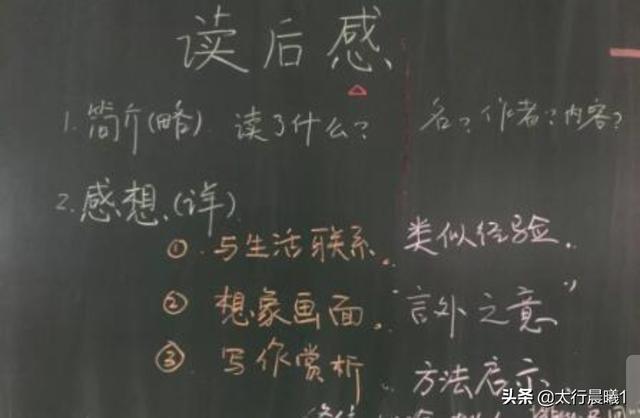 读后感
1.简介(略). 读了什么? 名?作者?内容?
2.感想.(详)
① 与生活联系。类似经验.
② 想象画面。"言外之意"
③ 写作赏析 方法启示.
头条 @太行晨曦1